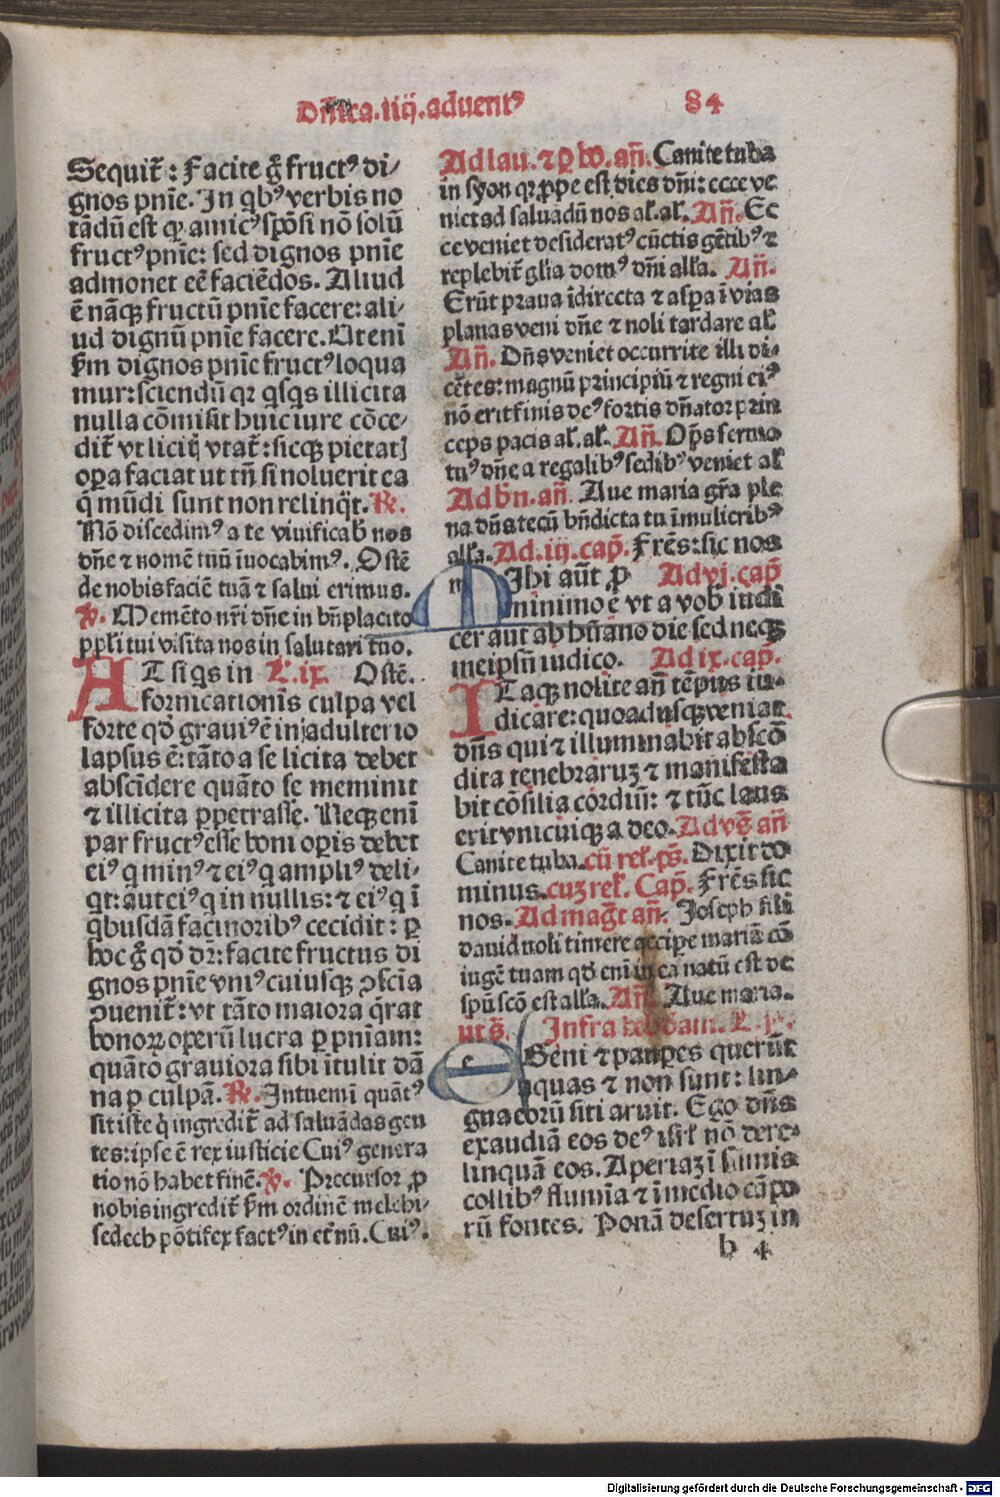 Dn̄ica.iiij.aduentꝰ 84
Sequit̄: Facite g̊ fructꝰ di/
gnos pnīe. In qbꝰ verbis no
tādū est ꝙ amicꝰ spōsi nō solū
fructꝰ pnīe: sed dignos pnīe
admonet eē faciēdos. Aliud
ē nāqꝫ fructū pnīe facere: ali/
ud dignū pnīe facere. Ut eni
ẜm dignos pnīe fructꝰ loqua
mur: sciendū qꝛ qſqs illicita
nulla cōmisit huic iure cōce/
dit̄ vt licitꝭ vtat̄: sicqꝫ pietatꝭ
oꝑa faciat ut tn̄ si noluerit ea
q̄ mūdi sunt non relinq̈t. ℞.
Nō discedimꝰ a te viuificabꝭ nos
dn̄e ⁊ nomē tuū īuocabimꝰ. Ostē
de nobis faciē tuā ⁊ salui erimus.
℣. Memēto nr̄i dn̄e in bn̄placito
ppl̄i tui visita nos in salutari tuo.
AT si qs in L.ix. Ostē.
fornicationis culpa vel
forte qd̄ grauiꝰ ē in adulterio
lapsus ē: tāto a se licita debet
abscīdere quāto se meminit
⁊ illicita ꝑpetrasse. Neqꝫ enī
par fructꝰ esse boni oꝑis debet
eiꝰ q minꝰ ⁊ eiꝰ q ampliꝰ deli/
qt: aut eiꝰ q in nullis: ⁊ eiꝰ q ī
qbusdā facinoribꝰ cecidit: ꝑ
hoc g̊ qd̄ dr̄: facite fructus di
gnos pnīe vniꝰcuiusqꝫ ꝯsciā
ꝯuenit̄: vt tāto maiora q̄rat
bonoꝝ operū lucra ꝑ pniam:
quāto grauiora sibi ītulit dā
na ꝑ culpā. ℞. Intuemī quātꝰ
sit iste q̇ ingredit̄ ad saluādas gen
tes: ipse ē rex iusticie Cuiꝰ genera
tio nō habet finē. ℣. Precursor ꝓ
nobis ingredit̄ ẜm ordinē melchi/
sedech pōtifex factꝰ in et̄nū. Cuiꝰ.
Ad lau. ⁊ ꝑ ho. an̄. Canite tuba
in syon qꝛ ꝓpe est dies dn̄i: ecce ve
niet ad saluādū nos al̄. al̄. An̄. Ec
ce veniet desideratꝰ cūctis gētibꝰ ⁊
replebit̄ glīa domꝰ dn̄i all̄a. An̄.
Erūt praua īdirecta ⁊ aspa ī vias
planas veni dn̄e ⁊ noli tardare al̄
An̄. Dn̄s veniet occurrite illi di/
cētes: magnū principiū ⁊ regni eiꝰ
nō erit finis deꝰ fortis dn̄ator prin
ceps pacis al̄. al̄. An̄. Op̄s sermo
tuꝰ dn̄e a regalibꝰ sedibꝰ veniet al̄
Ad bn̄. an̄. Aue maria gr̄a ple
na dn̄s tecū bn̄dicta tu ī mulieribꝰ
all̄a. Ad. iij. cap̄. Frēs: sic nos
MIhi aūt ꝓ Ad vj. cap̄
minimo ē vt a vob̄ iudi
cer aut ab hūano die sed neqꝫ
meipsū iudico. Ad ix. cap̄.
ITaqꝫ nolite an̄ tēpus iu/
dicare: quoadusqꝫ veniat
dn̄s qui ⁊ illuminabit abscō
dita tenebraruꝫ ⁊ manifesta
bit cōsilia cordiū: ⁊ tūc laus
erit vnicuiqꝫ a deo. Ad vs̄ an̄
Canite tuba. cū rel̄. ps̄. Dixit do
minus. cuꝫ rel̄. Cap̄. Frēs sic
nos. Ad magt̄ an̄. Joseph fili
dauid noli timere accipe mariā cō
iugē tuam qd̄ enī in ea natū est de
spū scō est all̄a. An̄. Aue maria.
ut s̄. Infra hebdam. L. j.
eGeni ⁊ pauꝑes querūt
aquas ⁊ non sunt: lin/
gua eorū siti aruit. Ego dn̄s
exaudiā eos deꝰ isrl̄ nō dere/
linquā eos. Aperiaꝫ ī supinis
collibꝰ flumīa ⁊ ī medio cāpo
rū fontes. Ponā desertuꝫ in
b 4
Digitalisierung gefördert durch die Deutsche Forschungsgemeinschaft - DFG